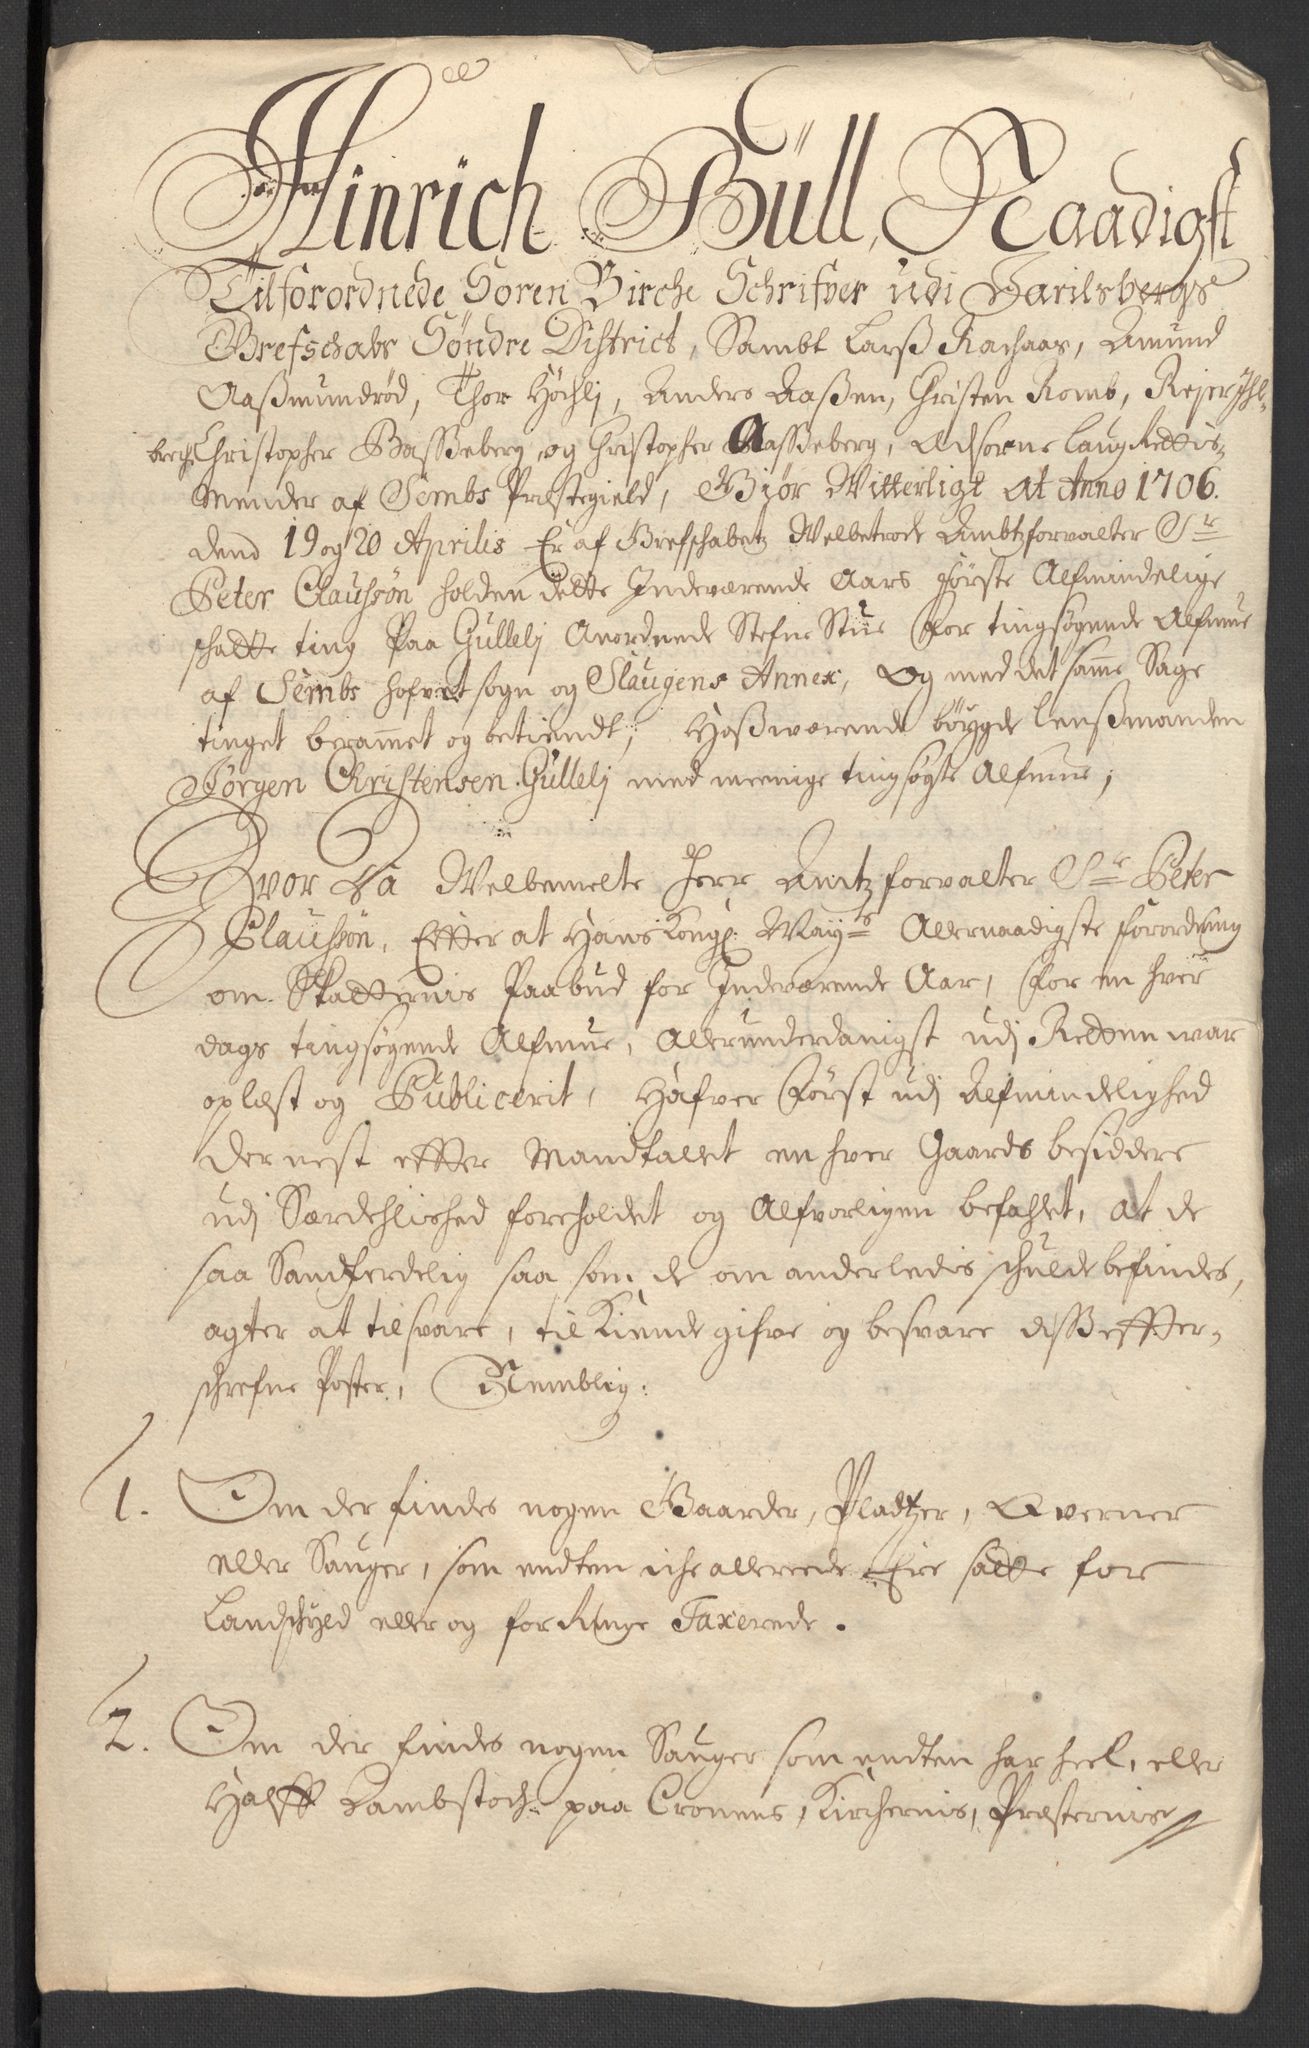 Hinrich Büll, Naadigst
Tilforordnede Soren Birche Schrifver udi Jarilsbergs
Grefschabs Söndre District, Sambt Larß Rachaas, Amund
Aaßmundröd, Thor Höchlj, Anders Aaßen, Christen Romb, Rejer Ihl-
brech, Christopher Basseberg, og Christopher Aasseberg, Edsorne Laug Rettis-
Mender af Sembs Præstegield, Giör Witterligt at Anno 1706.
dend 19 og 20 Aprilis Er af Grefschabetz Welbetrode Ambtzforvalter Sr
Peter Claussön holden dette Indeværende Aars förste Alfmindelige
schatte ting Paa Gullelj Anordnede Stefne Stue for tingsögende Alfmue
af Sembs hofvet sogn og Slaugens Annex, Og med det samme Sage
tinget berammet og betiendt, Hoßwærende böygde lenßmanden
Jörgen Christensen Gullelj med meenige tingsögte Alfmue;
Hvor Da Welbemelte Herr Amtz forvalter Sr Peter
Claussön, Efter at Hans Kongl: Mayts Allernaadigste forordning
om Skatternis Paabud for Indeværende Aar, for en hver
dags tingsögende Alfmue, Allerunderdanigst udj Retten war
oplæst og Publicerit, Hafver först udj Alfmindelighed
der nest effter Mandtallet en hver Gaards besiddere
udj Særdehlished foreholdet og Alfvorligen befahlet, at de
saa Sandferdelig saa som de om anderledis schulde befindes,
agter at tilsvare, til Kiende gifve og besvare disse effter-
schrefne Poster, Nemblig:
1. Om der findes nogen Gaarder, Pladtzer, Qverner
eller Sauger, som endten iche allereede Ere satte for
Landschyld eller og for Ringe Taxerede.
2. Om der findes nogen Sauger som endten har heel, eller
Halff Kambstoch paa Cronens, Kirchernis, Præsternis